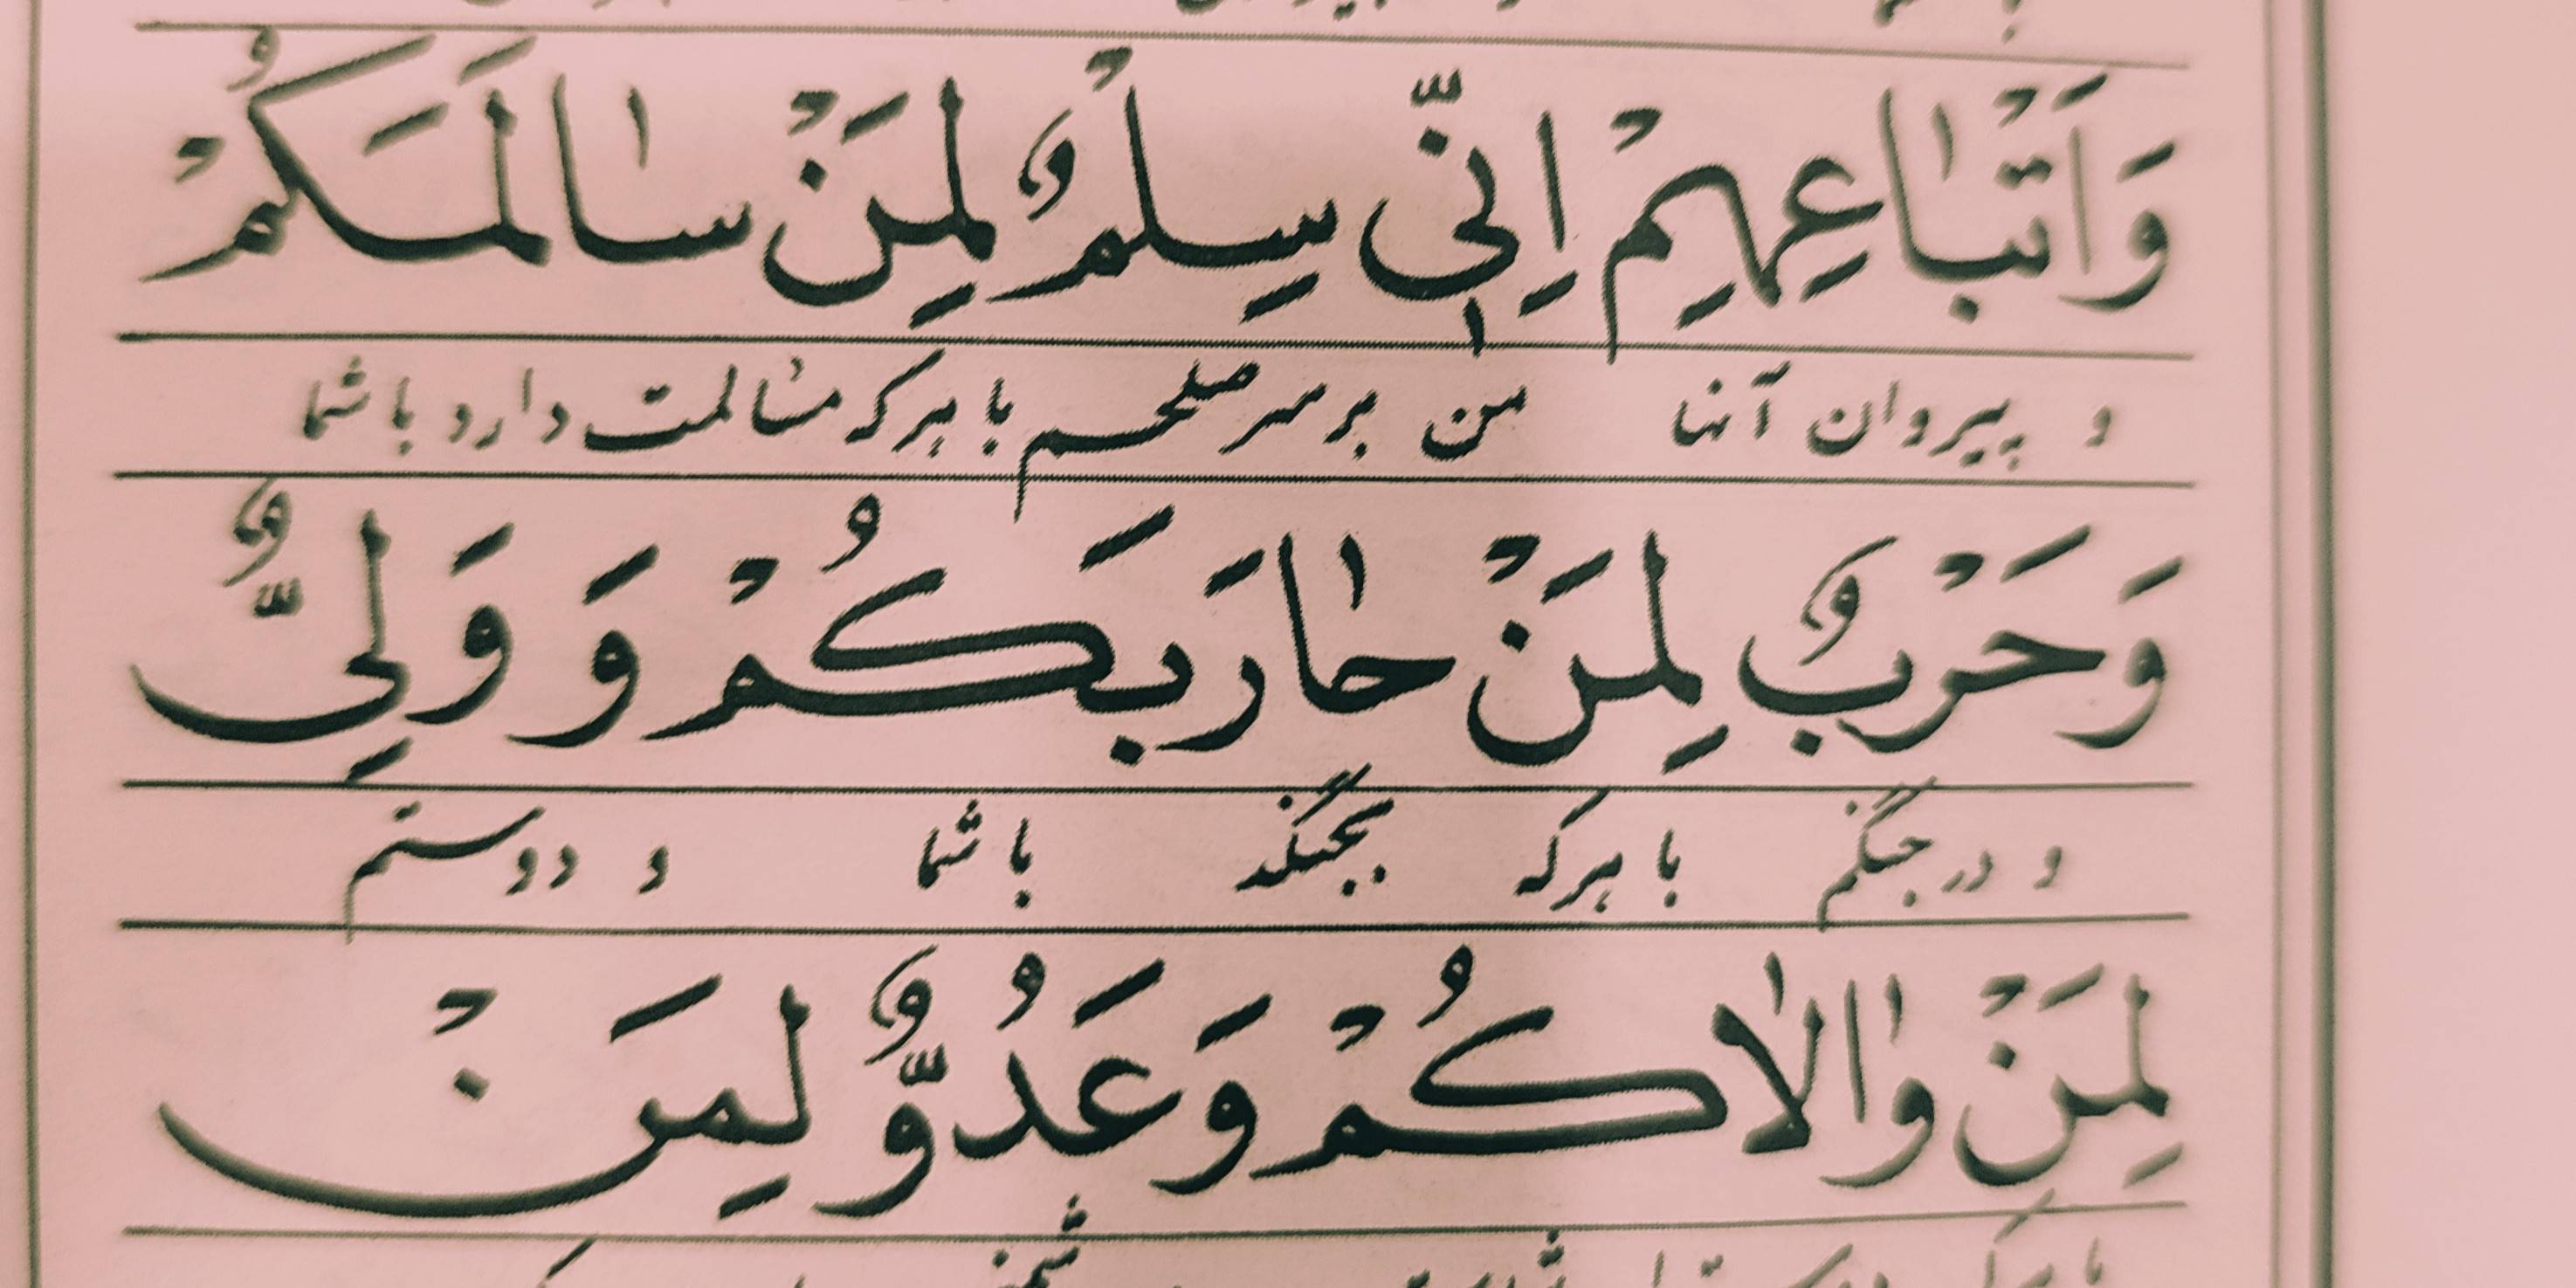 وَاَتْبٰاعِهِمْ اِنّٖى سِلْمٌ لِمَنْ سٰالَمَكُمْ
و پیروان آنها من بر سر صلحم با هرکه مسالمت دارد با شما
وَحَرْبٌ لِمَنْ حٰارَبَكُمْ وَ وَلِىٌّ
و در جنگم با هرکه بجنگد با شما و دوستم
لِمَنْ وٰالٰاكُمْ وَعَدُوٌّ لِمَنْ